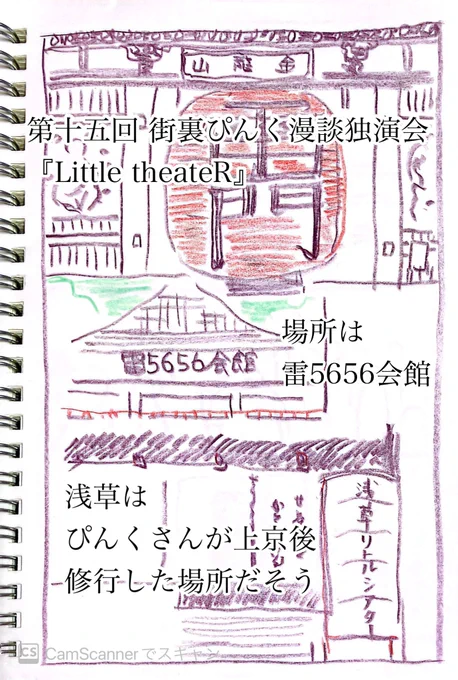 金龍山
第十五回 街裏ぴんく漫談独演会
『Little theateR』
場所は
雷5656会館
雷5656会館
浅草は
ぴんくさんが上京後
修行した場所だそう
浅草リトルシアター
CS CamScannerでスキャン